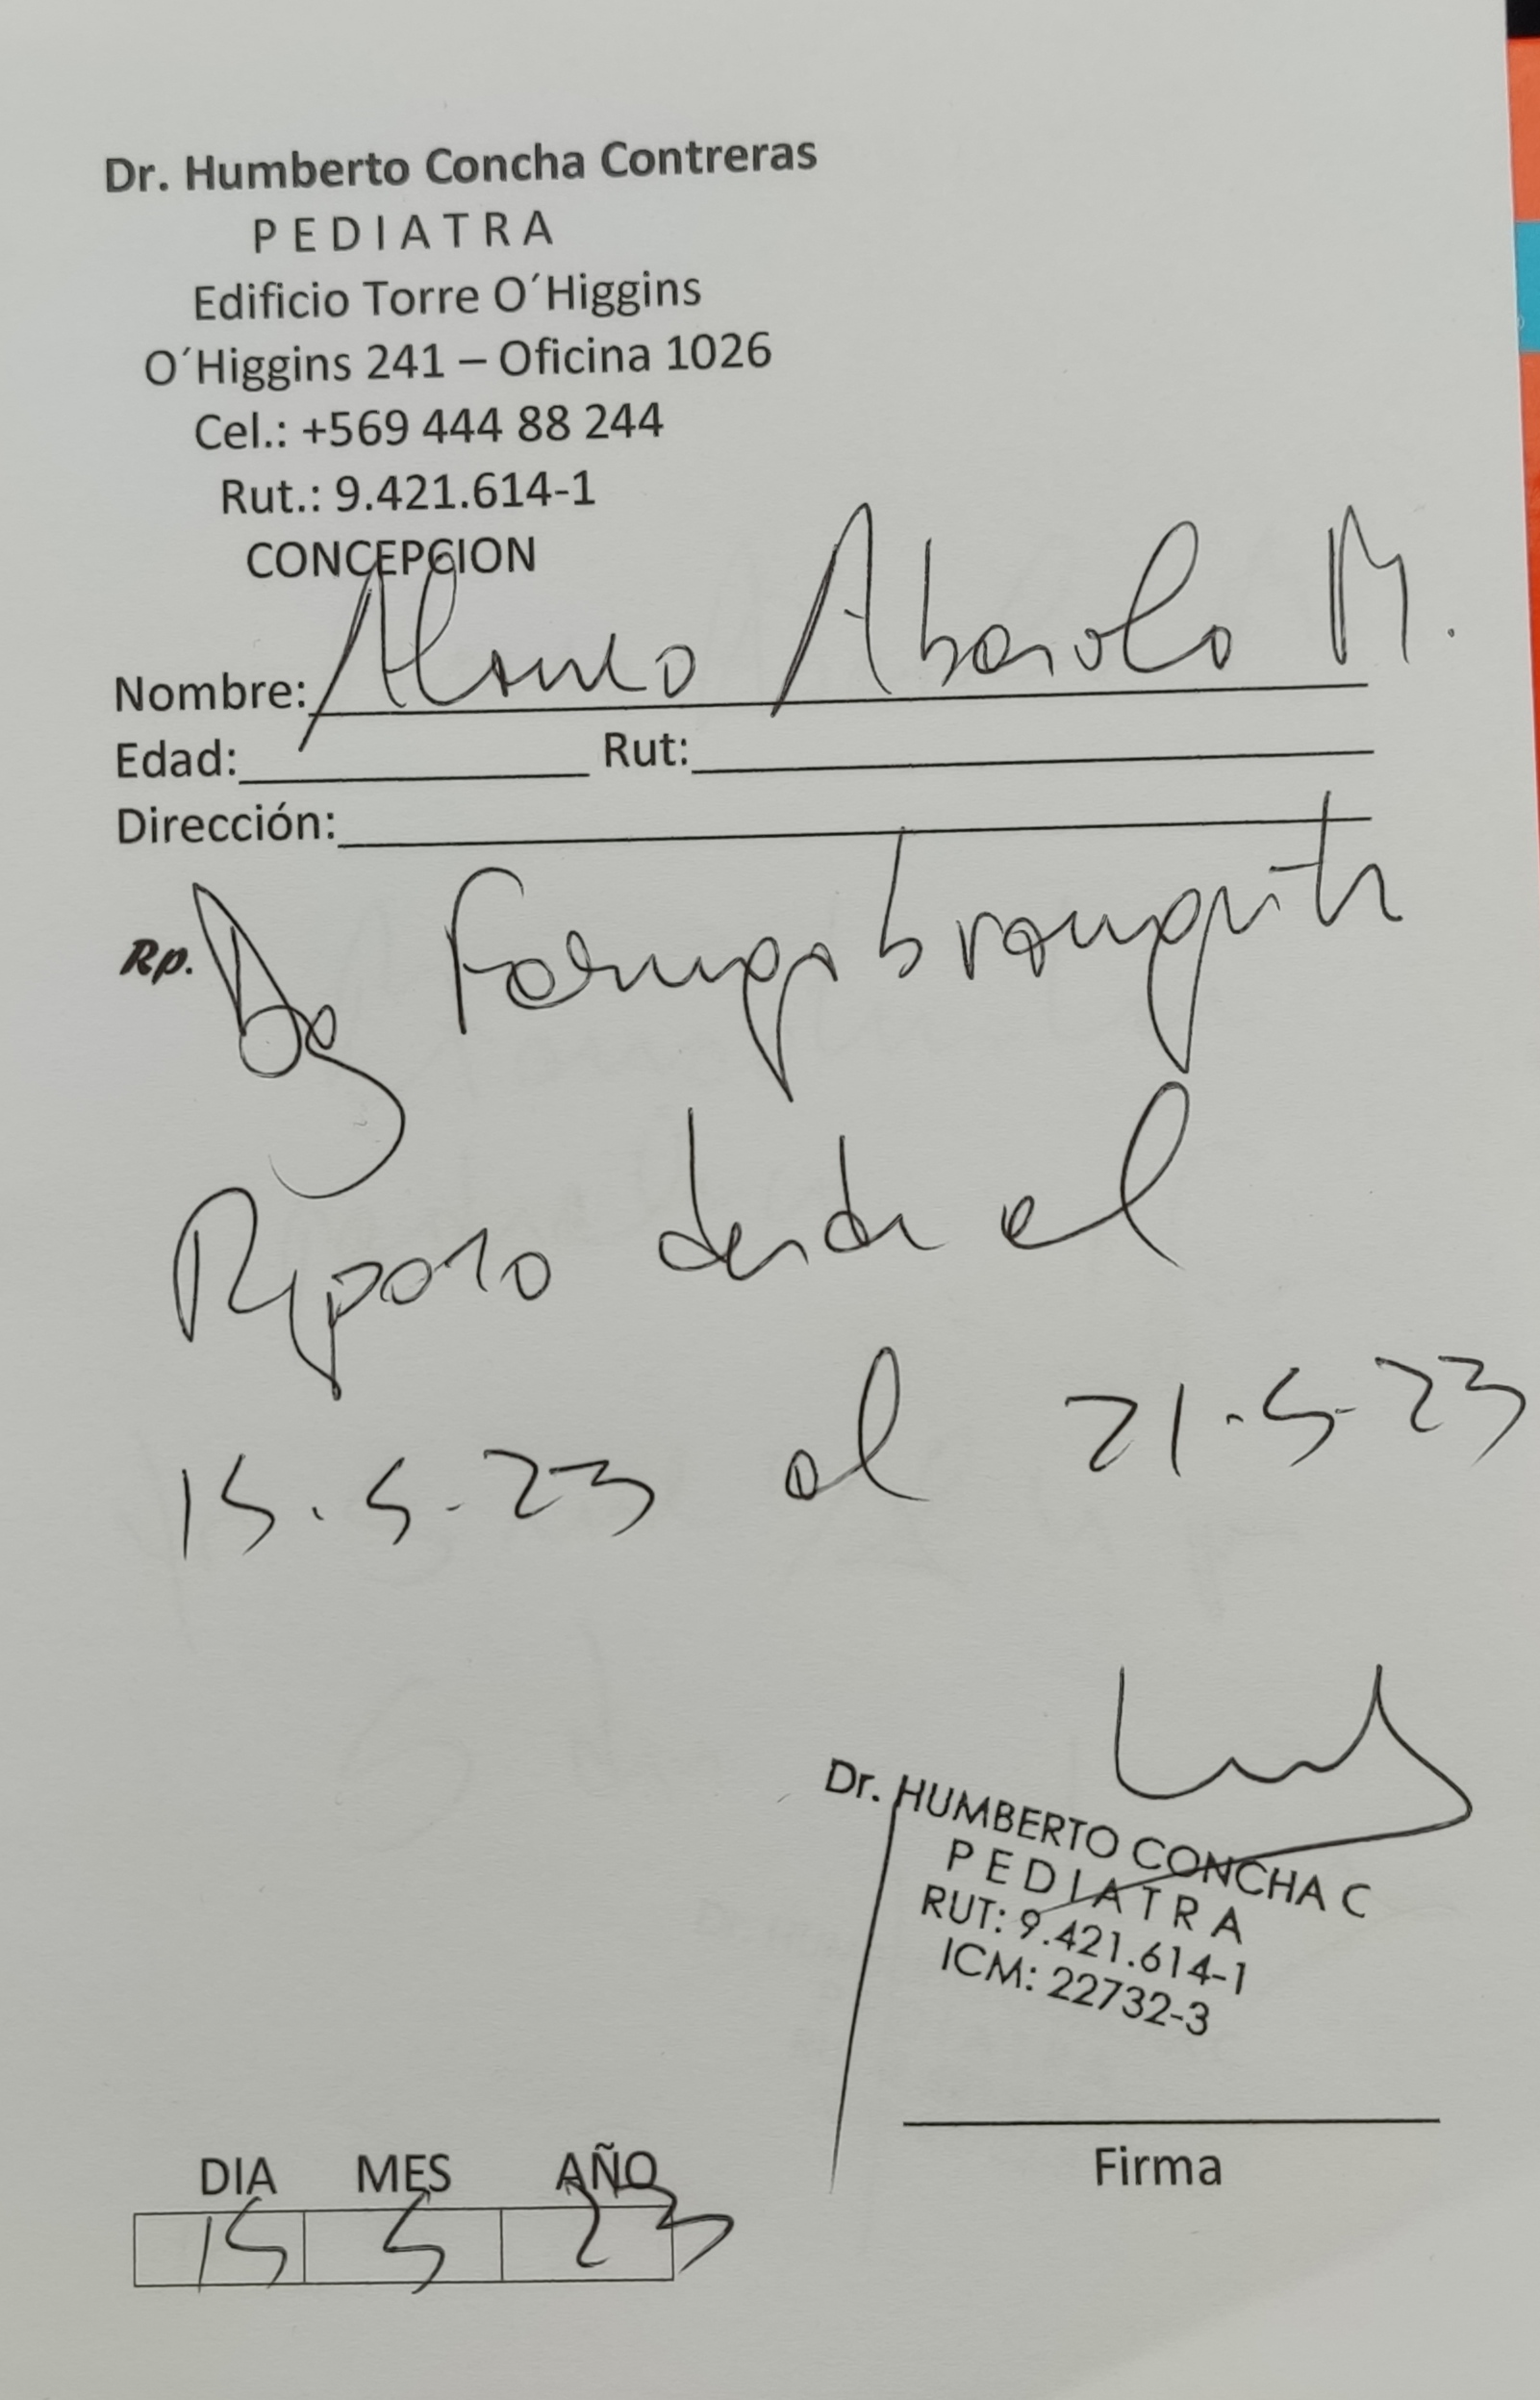 Dr. Humberto Concha Contreras
PEDIATRA
Edificio Torre O´Higgins
O´Higgins 241 – Oficina 1026
Cel.: +569 444 88 244
Rut.: 9.421.614-1
CONCEPCION
Nombre: M.
Edad: Rut:
Dirección:
Rp. Dg Faringobronquitis
Reposo desde el
15.5.23 al 21.5.23
Dr. HUMBERTO CONCHA C
PEDIATRA
RUT: 9.421.614-1
ICM: 22732-3
Firma
DIA MES AÑO
15 5 23